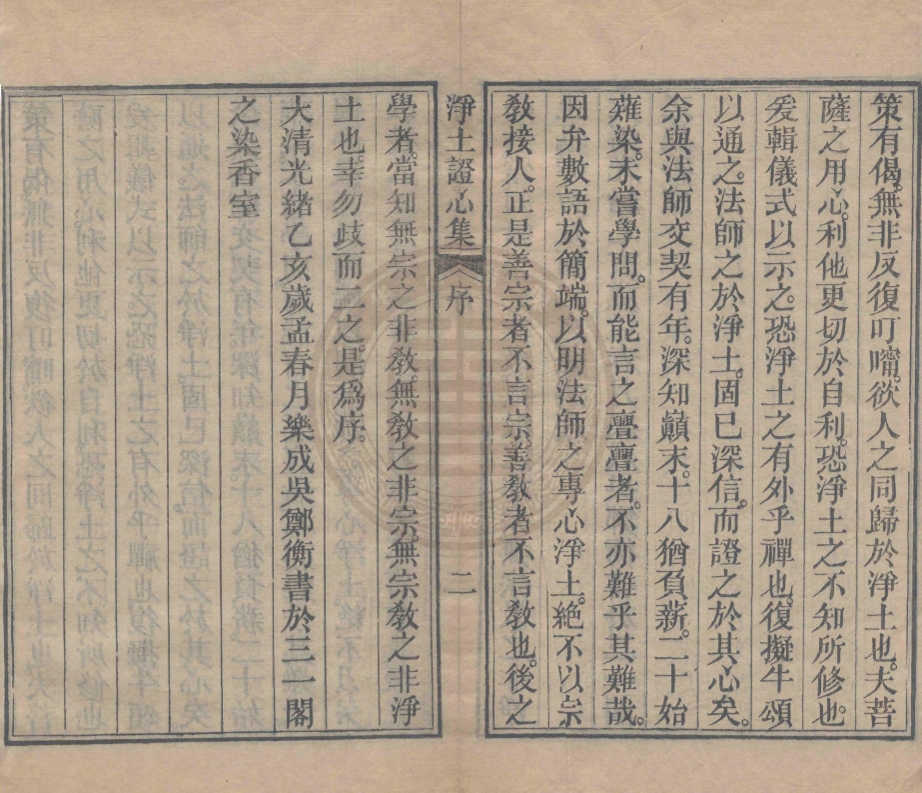 策有偈。無非反復叮嚀。欲人之同歸於淨土也。夫菩
薩之用心。利他更切於自利。恐淨土之不知所修也。
爰輯儀式以示之。恐淨土之有外乎禪也。復擬牛頌
以通之。法師之於淨土。固已深信。而證之於其心矣。
余與法師交契有年。深知巔末。十八猶負薪。二十始
薙染。未嘗學問。而能言之亹亹者。不亦難乎其難哉。
因弁數語於簡端。以明法師之專心淨土。絕不以宗
教接人。正是善宗者不言宗。善教者不言教也。後之
淨土證心集 序 二
學者。當知無宗之非教。無教之非宗。無宗教之非淨
土也。幸勿歧而二之。是爲序。
大清光緒乙亥歲孟春月樂成吳鄭衡書於三一閣
之染香室